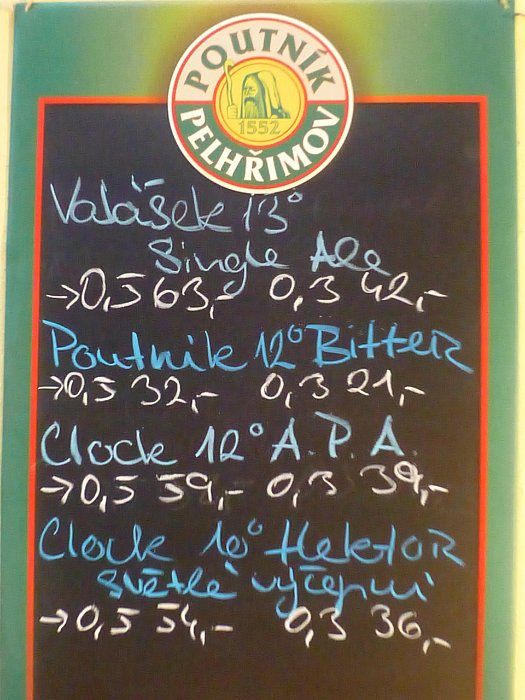 POUTNÍK
1552
PELHŘIMOV
Valášek 13°
Single Ale
→0,5 63,- 0,3 42,-
Poutník 12° Bitter
→0,5 32,- 0,3 21,-
Clock 12° A.P.A.
→0,5 59,- 0,3 39,-
Clock 10° Hektor
světlé výčepní
→0,5 54,- 0,3 36,-